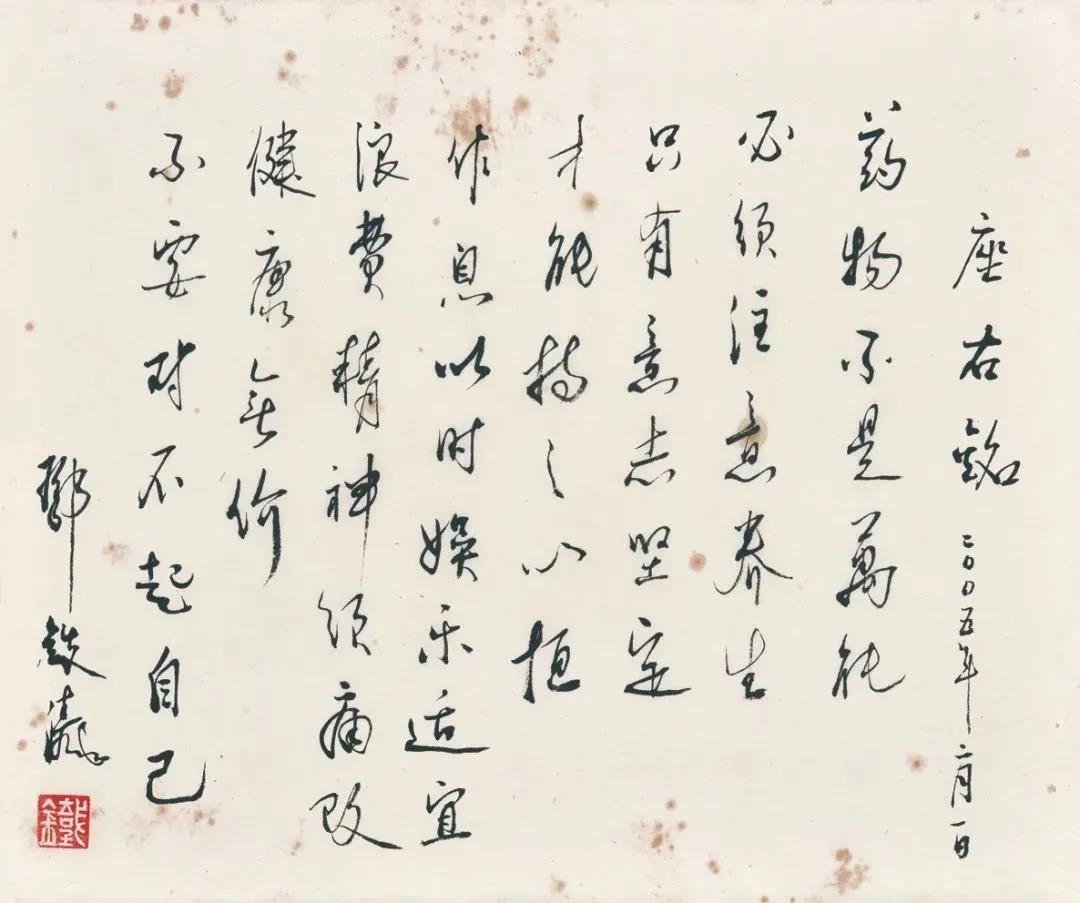 座右銘 二〇〇五年二月一日
药物不是萬能
必须注意养生
只有意志坚定
才能持之以恒
作息以时娱乐适宜
浪费精神须痛改
健康無价
不要对不起自己
鄧鉄涛
鐵